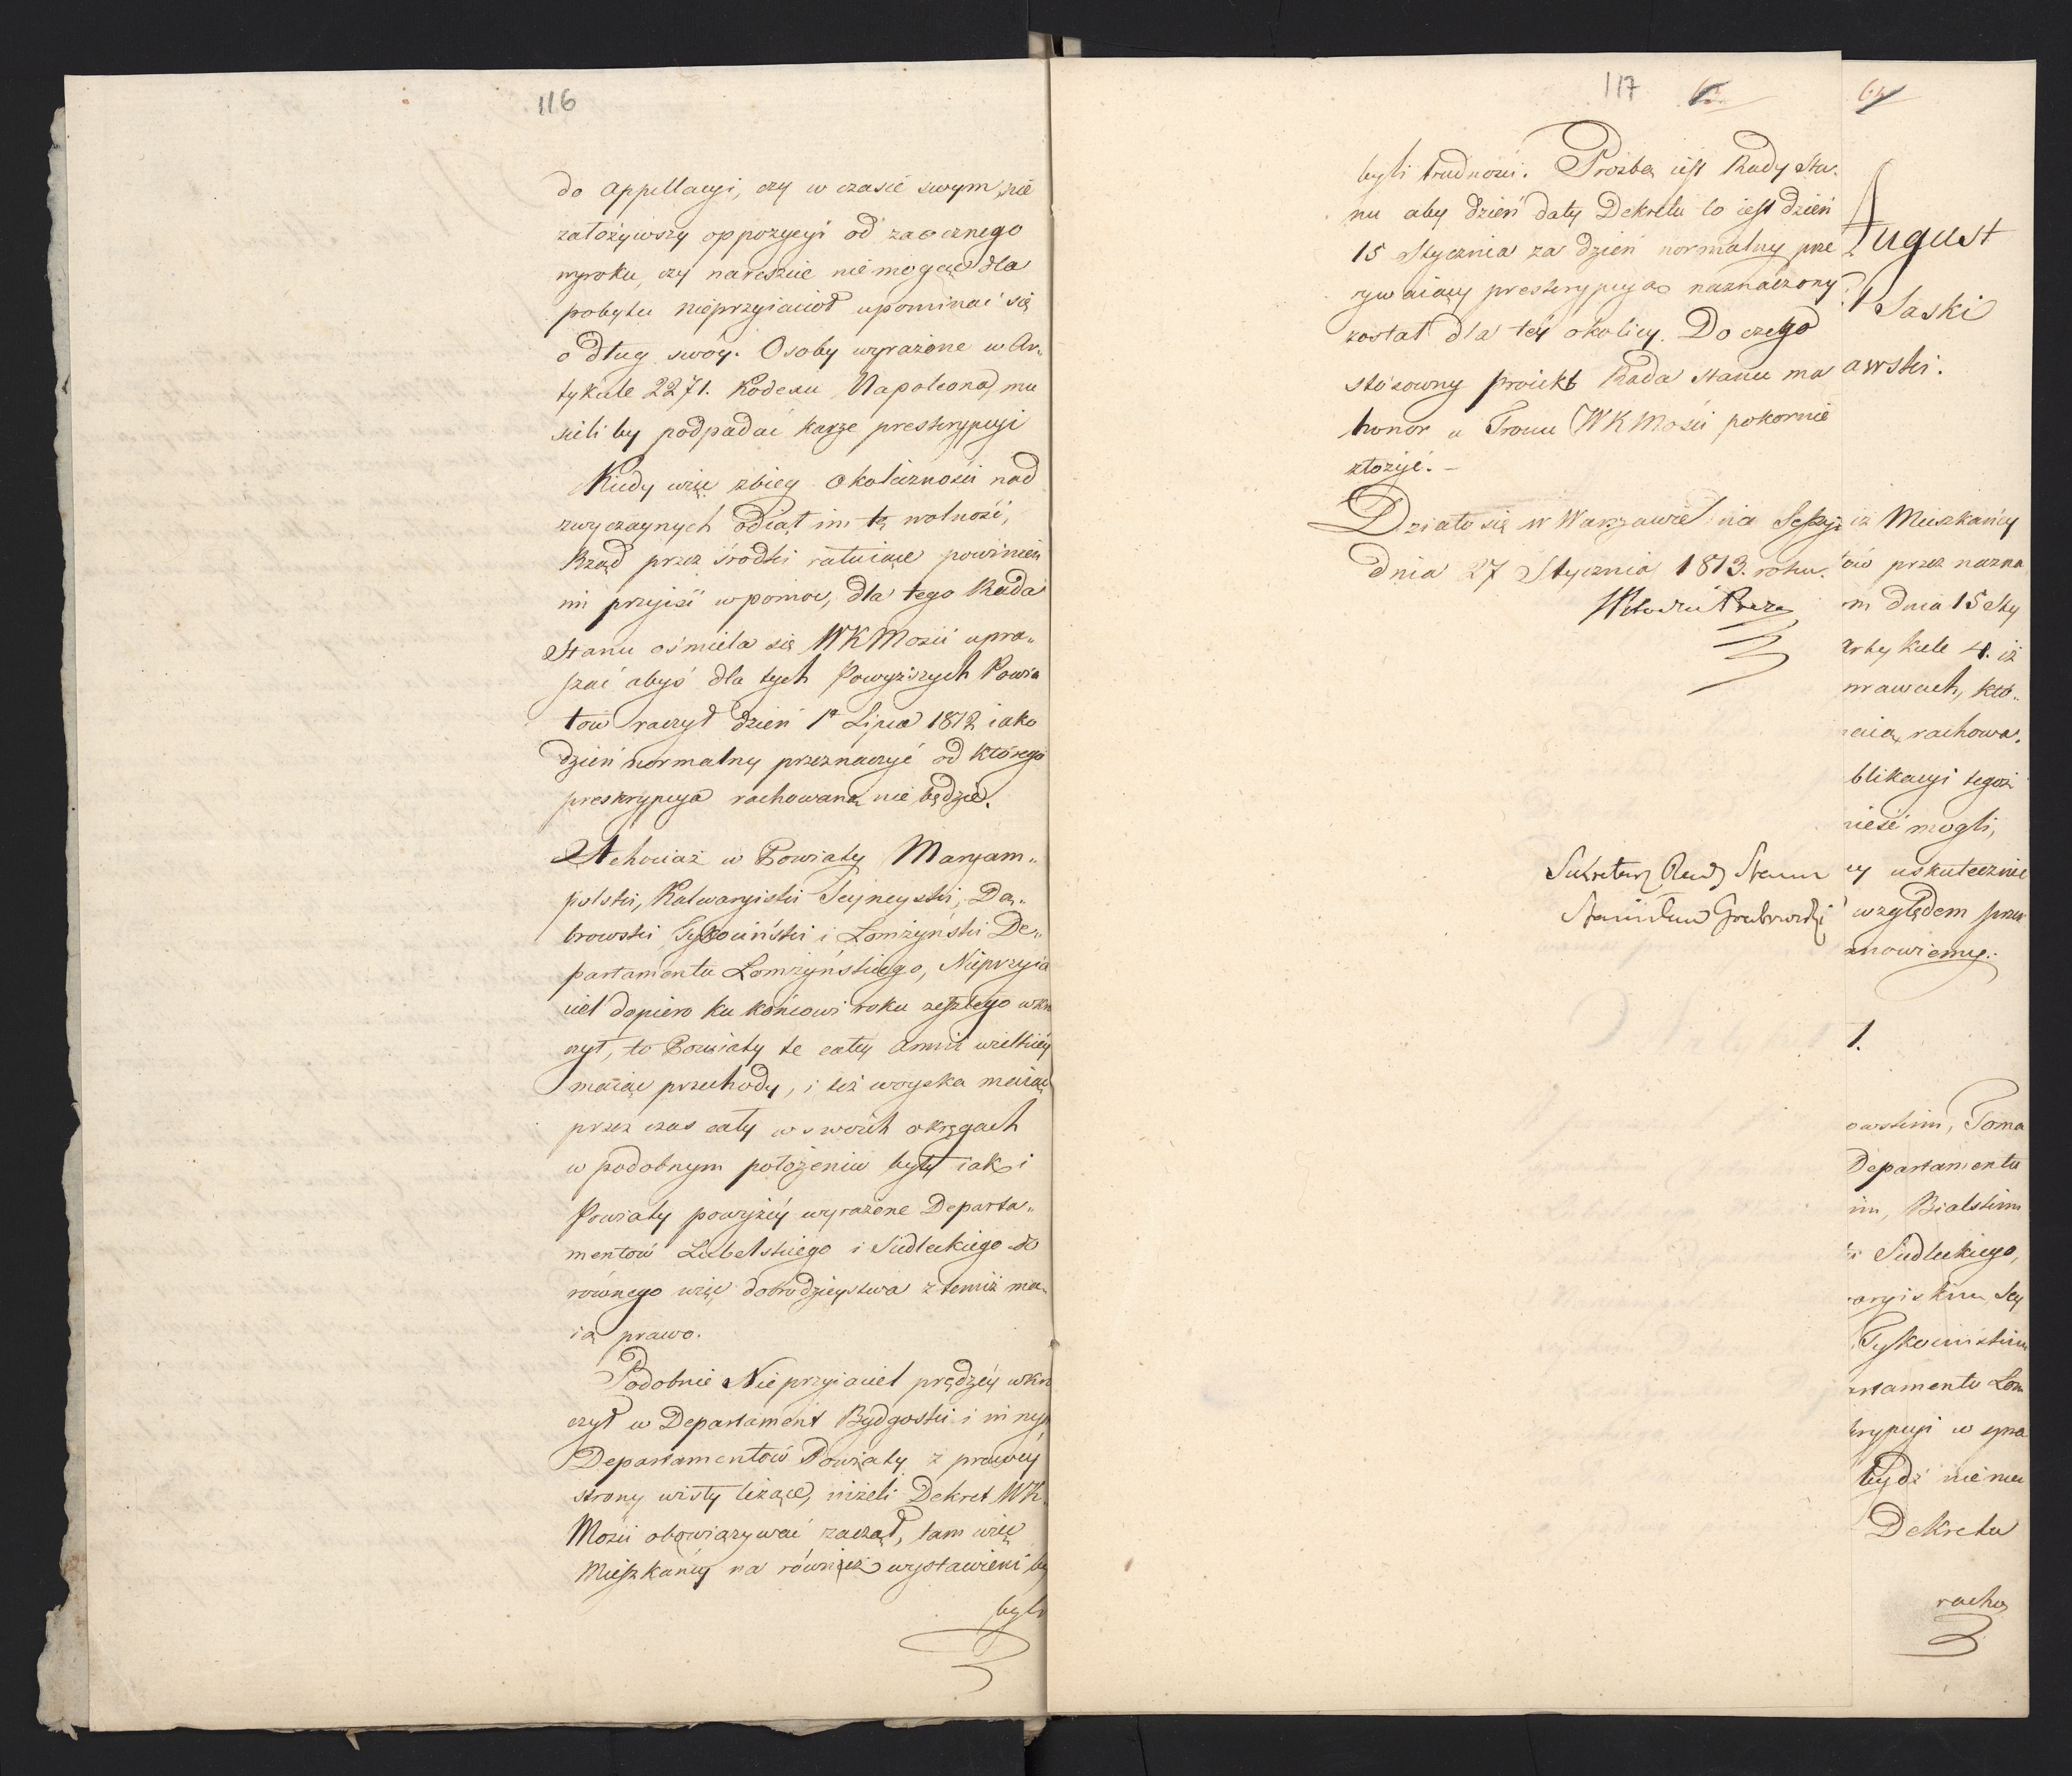 116
do appellacyi, czy w czasie swym nie
założywszy oppozycyi od zaocznego
wyroku, czy nareszcie nie mogąc dla
pobytu nieprzyiaciół upominać się
o dług swóy. Osoby wyrażone w Ar„
tykule 2271. Kodexu Napoleona, mu
sieli by podpadać karze preskrypcyi
Kiedy więc zbieg okoliczności nad
zwyczaynych odiął im tę wolność,
Rząd przez środki ratuiące powinien
im przyiść w pomoc, dla tego Rada
Stanu ośmiela się WKMości upra„
szać abyś dla tych Powyższych Powia
tów raczył dzień 1º Lipca 1812 iako
dzień normalny przeznaczyć od którego
preskrypcya rachowaną nie będzie.
A chociaż w Powiaty Maryam„
polski, Kalwaryiski Seyneyski, Dą„
browski Tykociński i Łomżyński De„
partamentu Łomżyńskiego, Nieprzyia
ciel dopiero ku końcowi roku zeszłego wkro
czył, to Powiaty te całey Armii wielkiey
maiąc przechody, i też woyska maiąc
przez czas cały w swoich okręgach
w podobnym położeniu były iak i
Powiaty powyżey wyrażone Departa„
mentów Lubelskiego i Siedleckiego do
równego więc dobrodzieystwa z temiż ma„
ią prawo.
Podobnie Nieprzyiaciel prędzey wkro
czył w Departament Bydgoski i innych
Departamentów Powiaty z prawey
strony wisły leżące, niżeli Dekret WK
Mości obowiązywać zaczął, tam więc
Mieszkańcy na również wystawieni by
byli
117
byli trudności. Prozbą iest Rady Sta„
nu aby dzień daty Dekretu to iest dzień
15 Stycznia za dzień normalny prze
rywaiący preskrypcyą naznaczony
został dla tey okolicy. Do czego
stosowny proiekt Rada Stanu ma
honor u Tronu WKMości pokornie
złożyć. –
Działo się w Warszawie na Sessyi
dnia 27 Stycznia 1813. roku.
Sekretarz Rady Stanu
Stanisław Grabowski
64
August
Saski
awski.
iż Mieszkańcy
tów przez nazna
m dnia 15 Sty
Artykule 4. iż
prawach, któ„
rachowa„
blikacyi tegoż
nieść mogli,
ey uskutecznie
względem prze
anowiemy.
1.
owskim, Toma
Departamentu
im, Bialskim
Siedleckiego,
aryiskim Sey
Tykocińskim
artamentu Łom
krypcyi w spra
bydź nie ma
Dekretu
racho